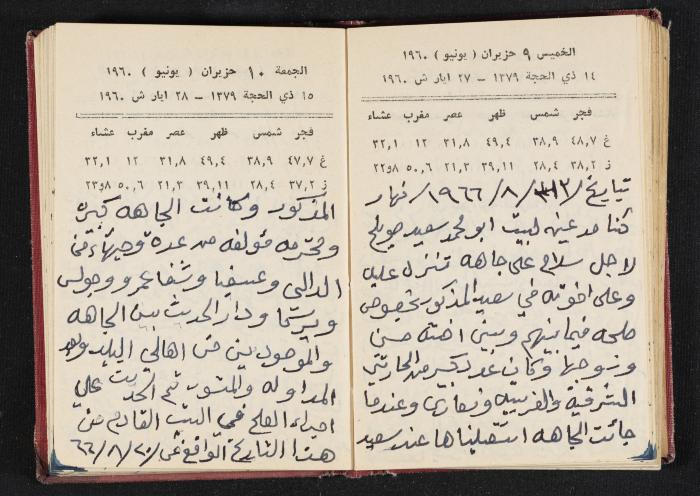 الخميس ٩ حزيران ( يونيو ) ١٩٦٠
١٤ ذي الحجة ١٣٧٩ – ٢٧ ايار ش ١٩٦٠
فجر شمس ظهر عصر مغرب عشاء
غ ٤٨,٧ ٣٨,٩ ٤٩,٤ ٣١,٨ ١٢ ٣٢,١
ز ٣٨,٢ ٢٨,٤ ٣٩,١١ ٢١,٣ ٥٠,٦ ٨و٢٢
بتاريخ ١٩٦٦/٨/١٢ نهار
كنا مدعين لبيت ابو محمد سعيد صويلح
لاجل سلام على جاهه تنزل عليه
وعلى اخوته في سعيد المذكور بخصوص
صلحه فيما بينهم وبين اخته حسن
وزوجها وكان عدد كبير من الحارتين
الشرقية والغربيه ونصارى وعندما
جائت الجاهه استقبلناها عند سعيد
الجمعة ١٠ حزيران ( يونيو ) ١٩٦٠
١٥ ذي الحجة ١٣٧٩ – ٢٨ ايار ش ١٩٦٠
فجر شمس ظهر عصر مغرب عشاء
غ ٤٧,٧ ٣٨,٩ ٤٩,٤ ٣١,٨ ١٢ ٣٢,١
ز ٣٧,٢ ٢٨,٤ ٣٩,١١ ٢١,٣ ٥٠,٦ ٨و٢٣
المذكور وكانت الجاهه كبيره
ومحترمه مؤلفه من عدة وجهاء من
الدالي وعسفيا وشفاعمرو وجولس
ويركا ودار الحديث بين الجاهه
والموجودين من اهالي البلد وبعد
المداوله والمشور تم الحديث على
اجراء الصلح في البيت القادم من
هذا التاريخ الواقع في ٦٦/٨/٢٠